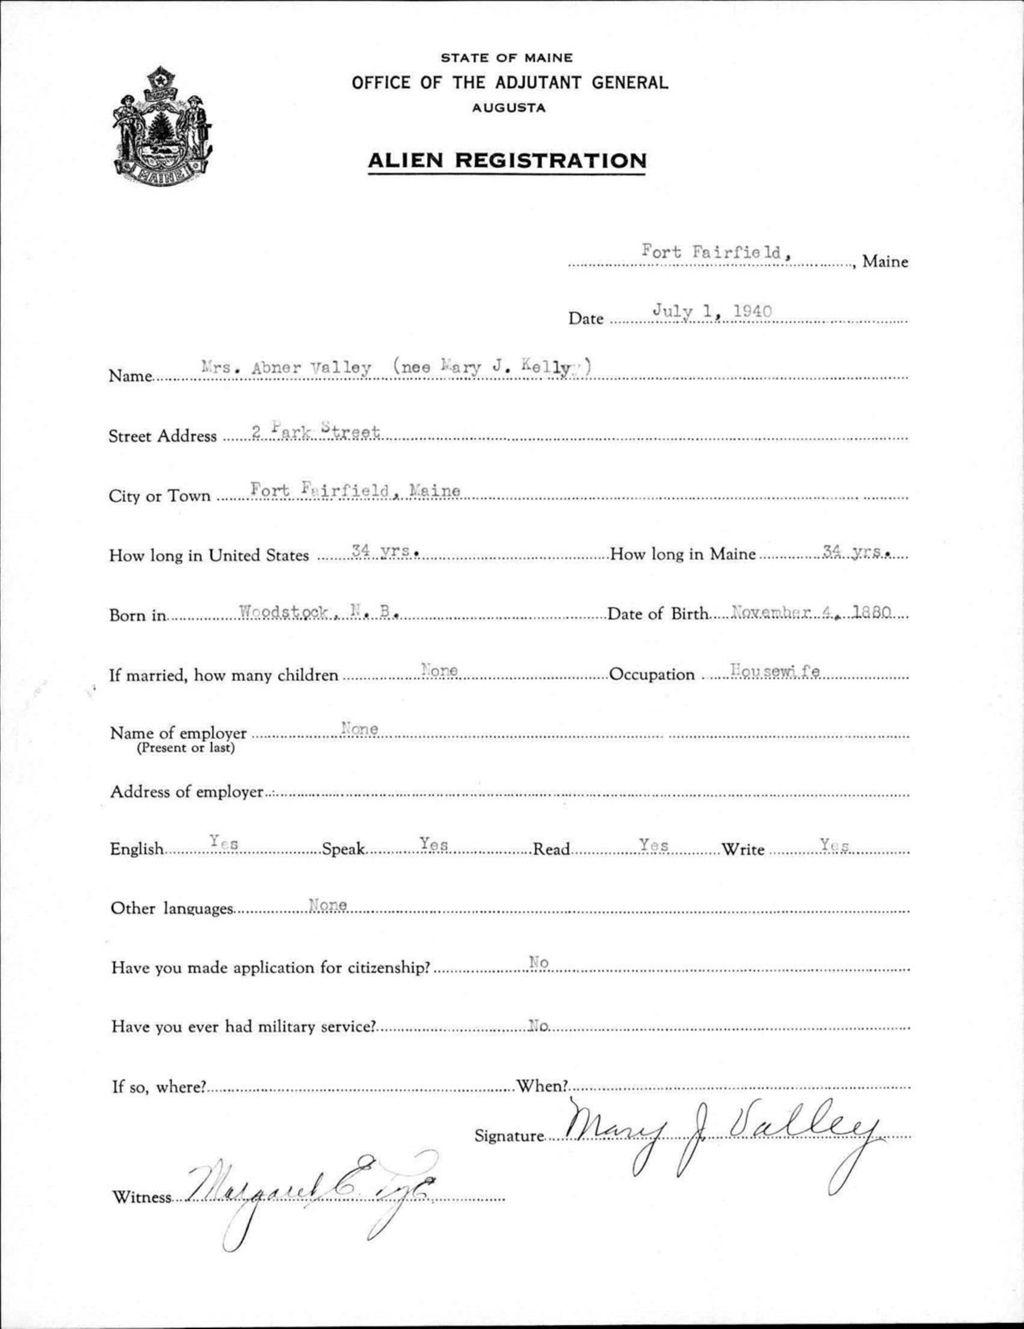 STATE OF MAINE
OFFICE OF THE ADJUTANT GENERAL
AUGUSTA
ALIEN REGISTRATION
MAINE
Fort Fairfield, , Maine
Date July 1, 1940
Name Mrs. Abner Valley (nee Mary J. Kelly )
Street Address 2 Park Street
City or Town Fort Fairfield, Maine
How long in United States 34 yrs. How long in Maine 34 yrs.
Born in Woodstock, N. B. Date of Birth November 4, 1880
If married, how many children None Occupation Housewife
Name of employer None
(Present or last)
Address of employer
English Yes Speak Yes Read Yes Write Yes
Other languages None
Have you made application for citizenship? No
Have you ever had military service? No
If so, where? When?
Signature Mary J Valley
Witness Margaret E. Tye